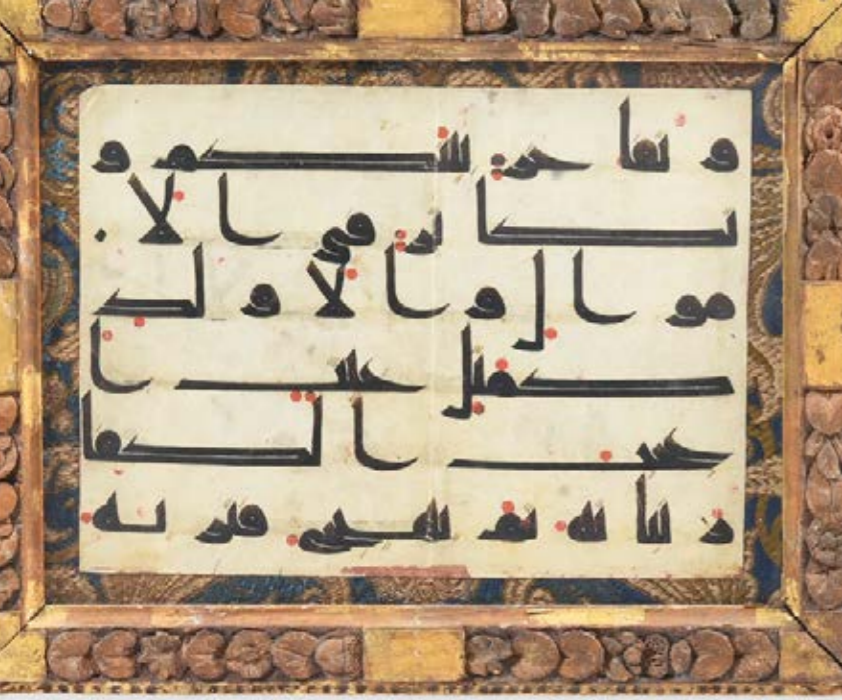 و تفاخر بينكم و
تكاثر في الا
موال و الاولد
كمثل غيث ا
عجب الكفا
ر نباته ثم يهيج فتريه